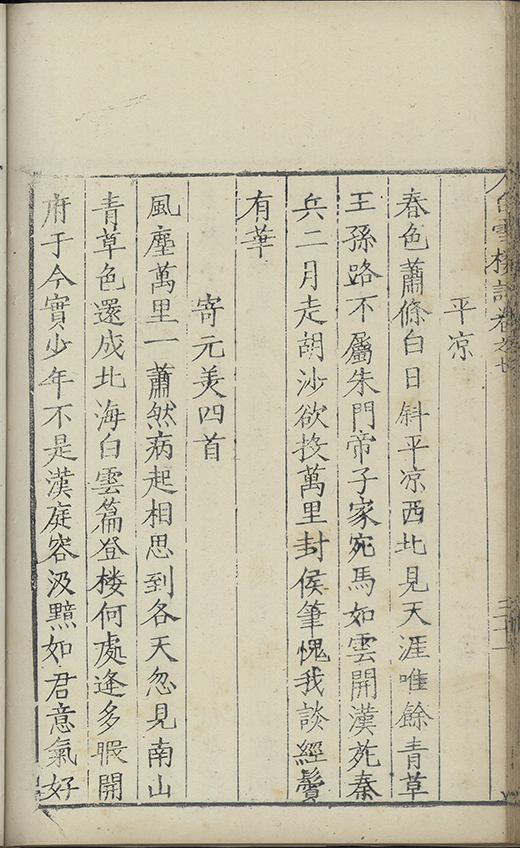 白雪樓詩卷之七
平凉
春色蕭條白日斜平凉西北見天涯唯餘青草
王孫路不屬朱門帝子家宛馬如雲開漢苑秦
兵二月走胡沙欲投萬里封侯筆愧我談經鬢
有華
寄元美四首
風塵萬里一蕭然病起相思到各天忽見南山
青草色還成北海白雲篇登楼何處逢多暇開
府于今實少年不是漢庭容汲黯如君意氣好